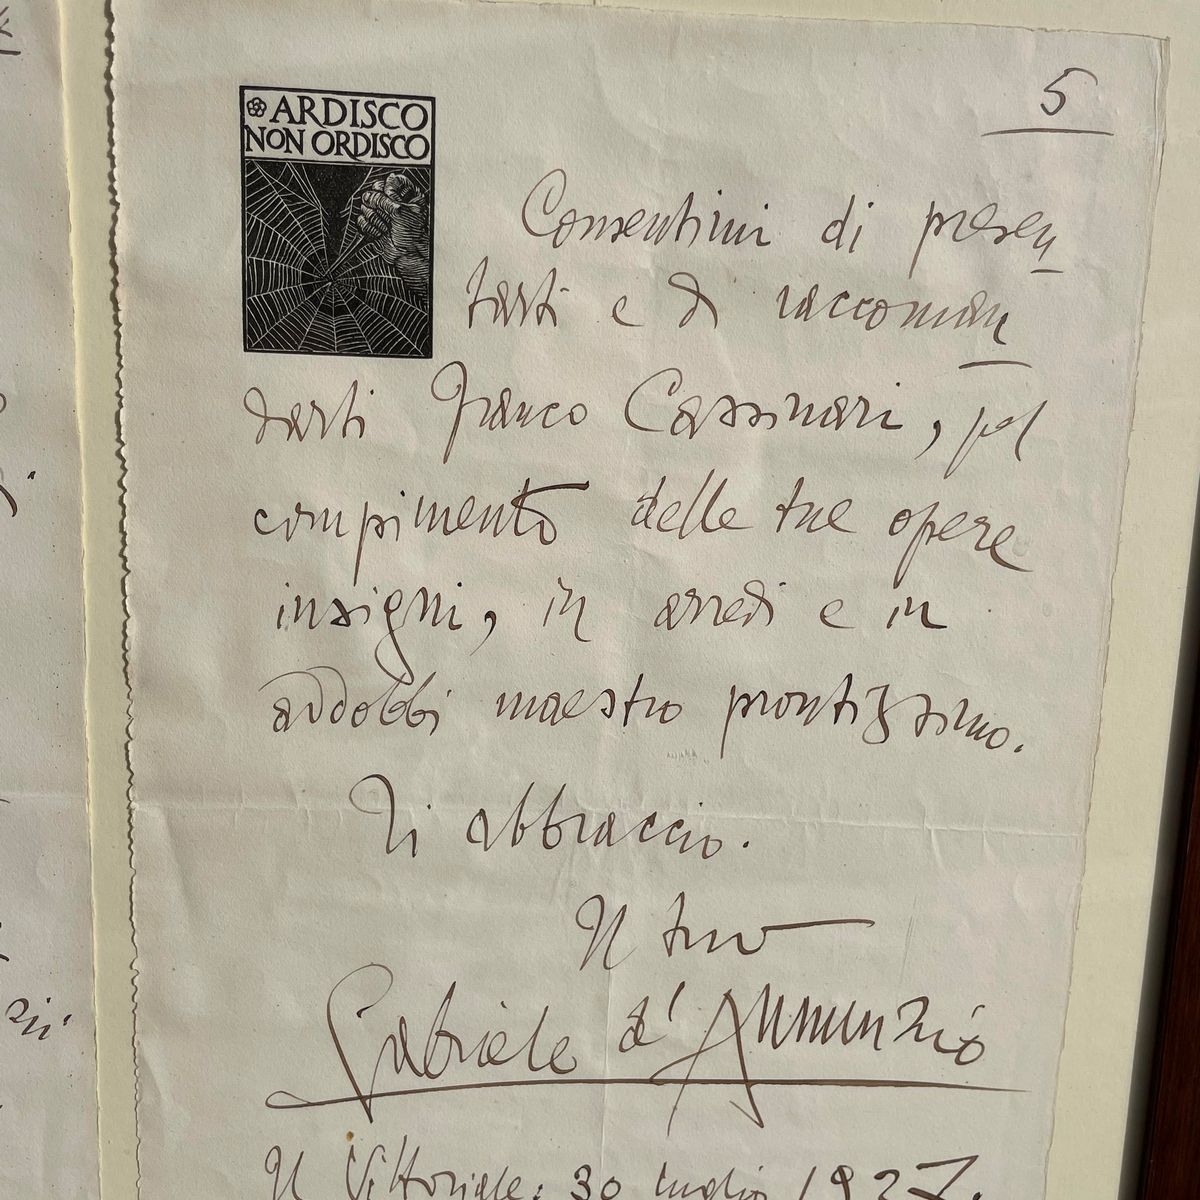 5
ARDISCO
NON ORDISCO
Consentimi di presen
tarti e di raccoman
darti Franco Cassinari, pel
compimento delle tue opere
insigni, in arredi e in
addobbi maestro prontissimo.
Ti abbraccio.
Il tuo
Gabriele d'Annunzio
Il Vittoriale: 30 luglio 1927.